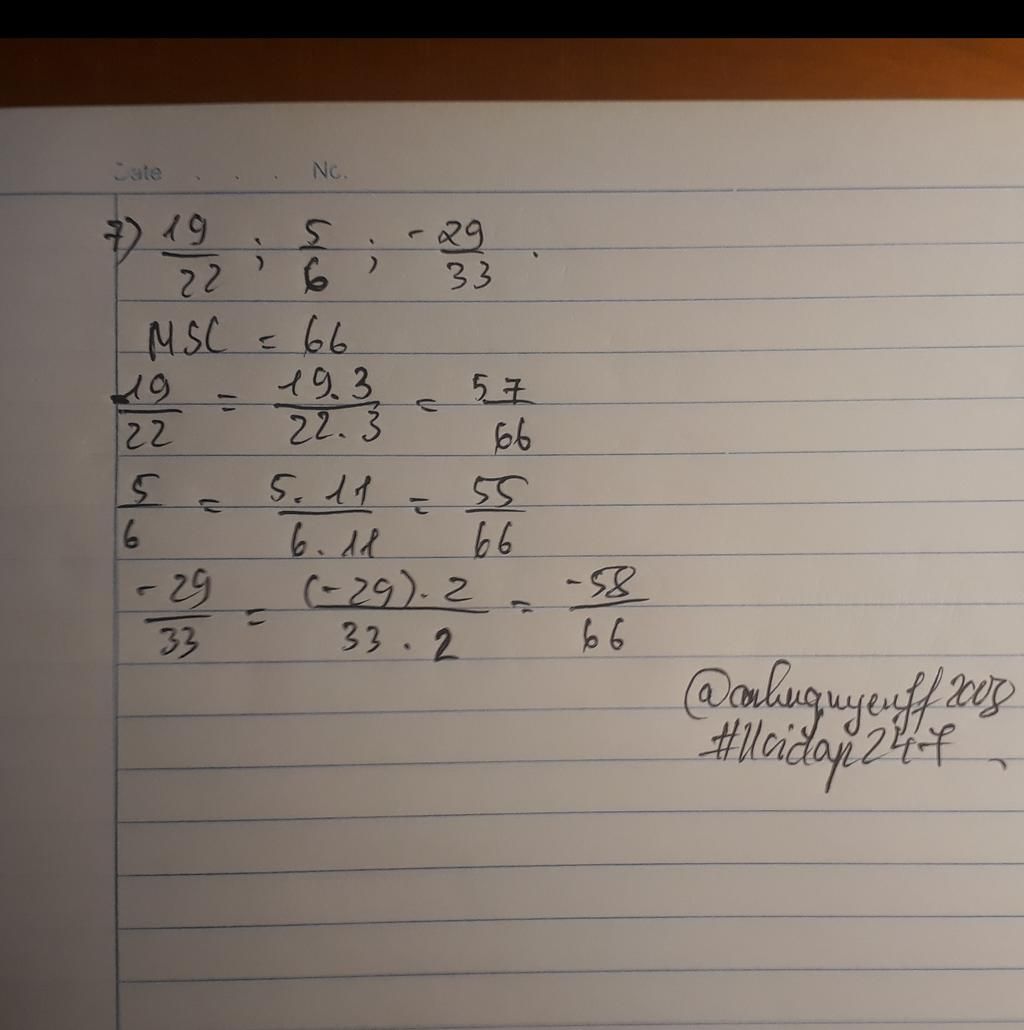 Date . . . No.
7) 19/22 ; 5/6 ; -29/33 .
MSC = 66
19/22 = 19.3/22.3 = 57/66
5/6 = 5.11/6.11 = 55/66
-29/33 = (-29).2/33.2 = -58/66
#Hoidap247